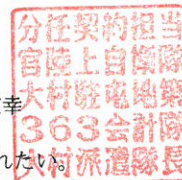 分任契約担当
官陸上自衛隊
大村駐屯地第
363会計隊
大村派遣隊長
幸
れたい。